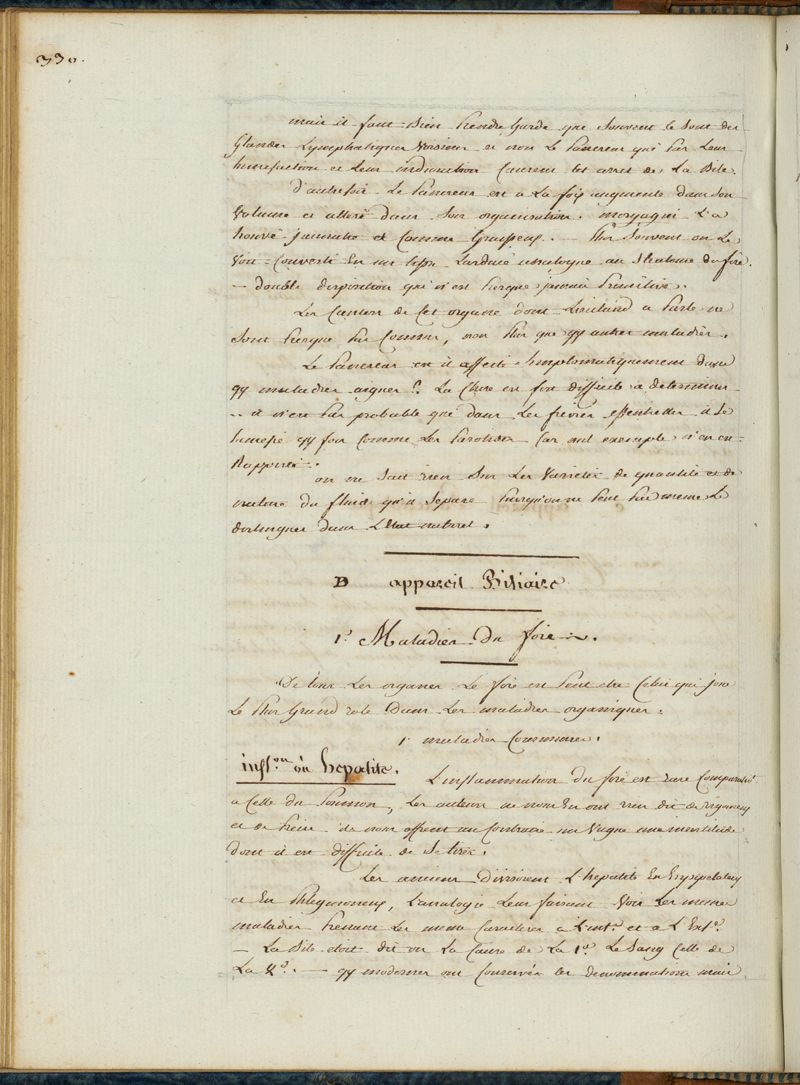 330.
mais il faut bien prendre garde que souvent ce sont des
Glandes Lymphatiques voisines et non le pancreas qui par leur
tumefaction et leur induration causent les arrets de la Bile.
D'autrefois le pancreas est a la fois augmenté dans son
volume et altéré dans son organisation. morgagni l'a
trouvé jaunatre et comme graisseux. — plus souvent on le
voit converti en un tissu lardacé analogue au steatome du foie.
— double disposition qui n'est presque jamais primitive.
Les Cancers de cet organe dont Lieutaud a parlé ne
sont presque pas communs, non plus que qq autres maladies.
Le pancreas est il affecté simptomatiquement dans
qq maladies aigues ? La chose est fort difficile a determiner
.. il n'est pas probable que dans les fievres essentielles il se
tumefie qq fois comme les parotides car nul exemple n'en est
Rapporté.
on ne sait rien sur les varietés de quantité et de
nature du fluide qu'il separe puisqu'on ne peut pas meme le
distinguer dans l'état naturel.
B appareil Biliaire
1.° Maladies du foie.
De tous les organes le foie est peut etre celui qui joue
le plus Grand role dans les maladies organiques.
1 maladies communes.
infl.on ou hepatite.
L'inflammation du foie est rare comparativ.t
a celle du poumon, les auteurs ne nous en ont rien dit de rigoureux
et de precis ils nous offrent au contraire un vague une incertitude
dont il est difficile de se tirer.
Les anciens divisoient l'hepatite en Erysipelateux
et En Phlegmoneux, l'analogie leur faisant voir les memes
maladies prenant les meme caracteres a l'int.r et a l'Ext.r
— La Bile etoit dit on la cause de la 1.e Le sang celle de
La 2.e — qq modernes ont conservés les denominations mais